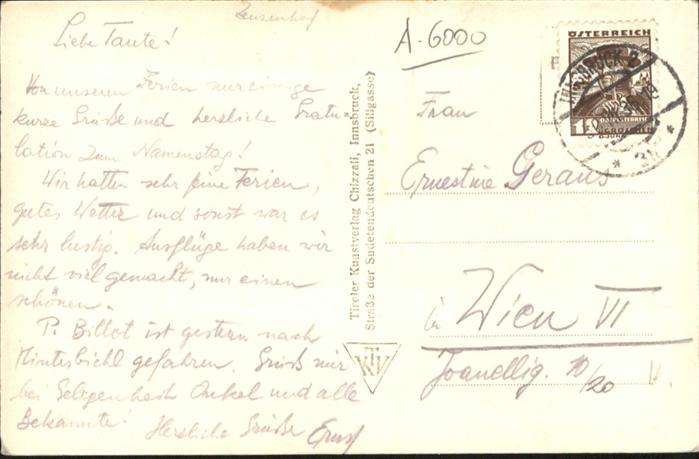 Liebe Tante!
Von unseren Ferien nur einige
kurze Grüße und herzliche Gratu-
lation zum Namenstag!
Wir hatten sehr feine Ferien,
gutes Wetter und sonst war es
sehr lustig. Ausflüge haben wir
nicht viel gemacht, nur einen
schönen.
P. Billot ist gestern nach
gefahren. Grüß mir
bei Gelegenheit Onkel und alle
Bekannte!
Herzliche Grüße Ernst
Tiroler Kunstverlag Chizzali, Innsbruck,
Straße der Sudetendeutschen 21 (Sillgasse)
KTV
A-6000
ÖSTERREICH
1
GROSCHEN
INNSBRUCK 2
Frau
Ernestine Geraus
in Wien VI
Joanellig. 10/20